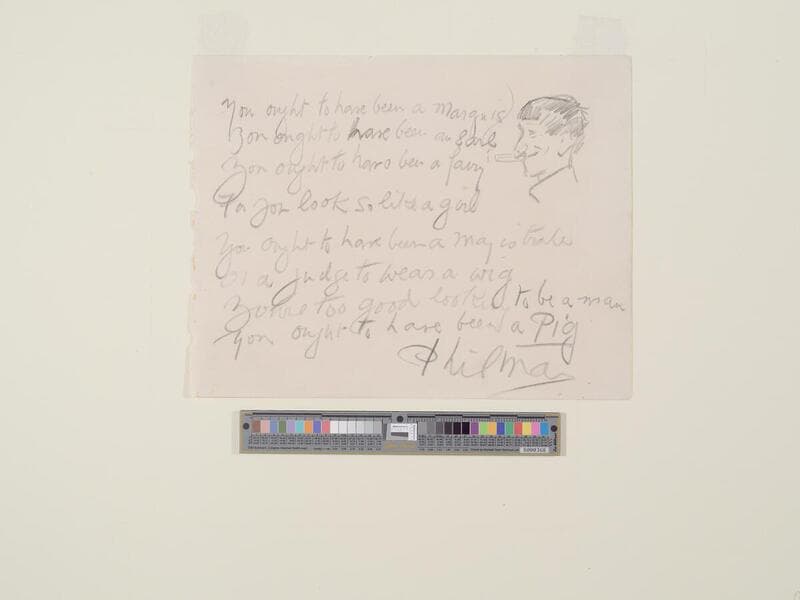 You ought to have been a Marquis
You ought to have been an Earl
You ought to have been a fairy
For you look so like a girl
You ought to have been a magistrate
Or a judge to wear a wig
You're too good looking to be a man
You ought to have been a Pig
Philmar